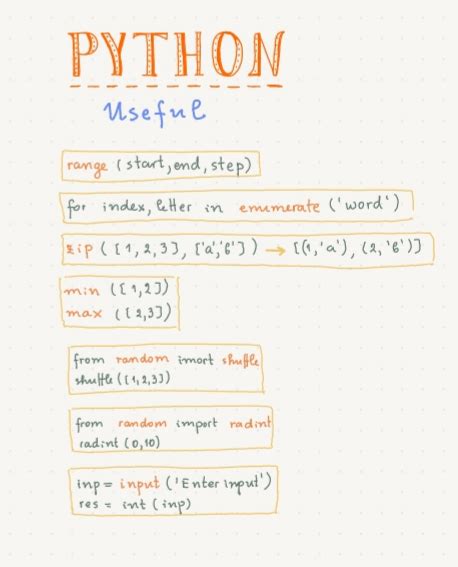 PYTHON
Useful
range (start,end,step)
for index, letter in enumerate ('word')
zip ([1,2,3], ['a','б']) → [(1,'a'), (2,'б')]
min ([1,2])
max ([2,3])
from random imort shuffle
shuttle([1,2,3])
from random import radint
radint (0,10)
inp = input ('Enter input')
res = int (inp)